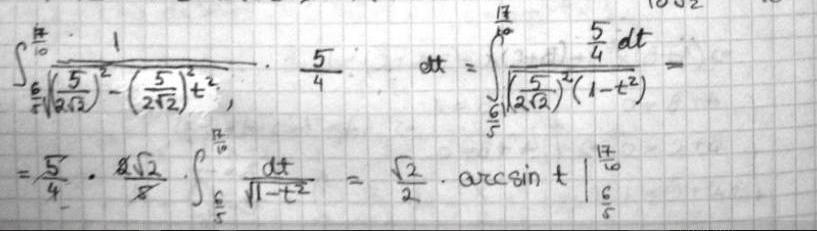 ∫_{6/5}^{17/10} 1/√((5/(2√2))² − (5/(2√2))² t²) · 5/4 dt = ∫_{6/5}^{17/10} (5/4 dt)/√((5/(2√2))² (1−t²)) =
= 5/4 · 2√2/5 · ∫_{6/5}^{17/10} dt/√(1−t²) = √2/2 · arcsin t |_{6/5}^{17/10}